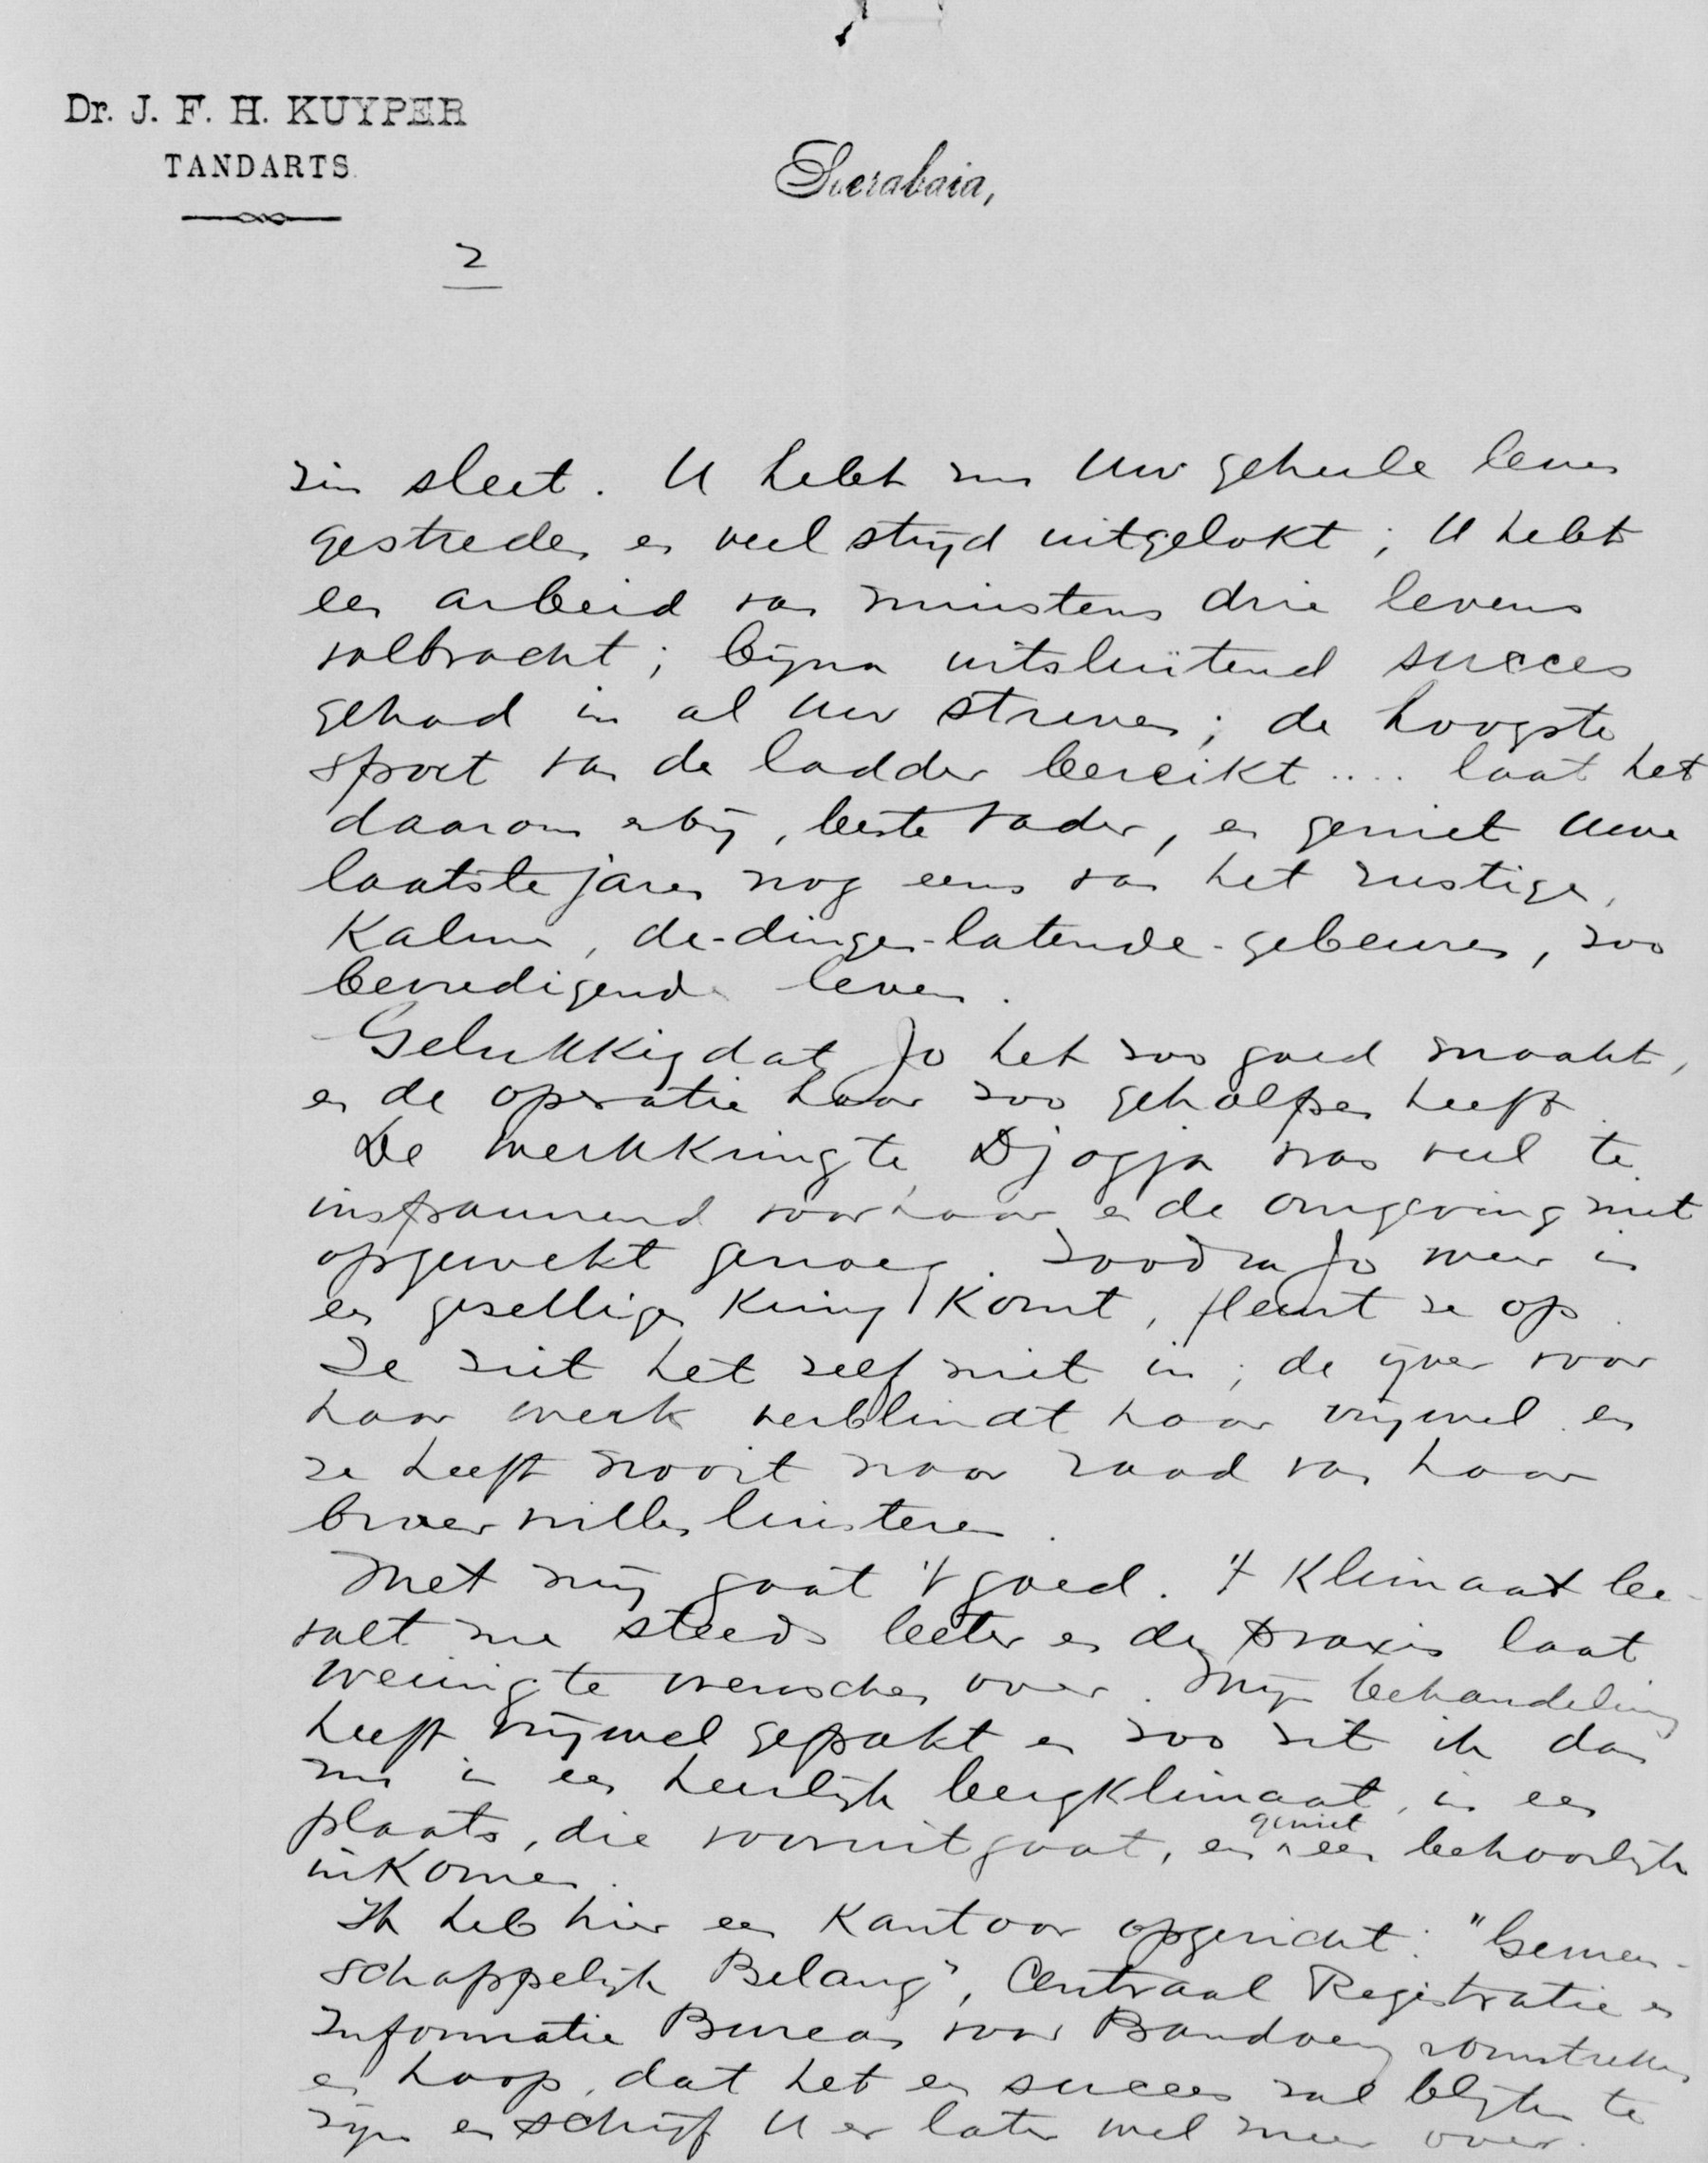 Dr. J. F. H. KUYPER
TANDARTS.
Soerabaia,
2
zin sleet. U hebt nu Uw geheele leven
gestreden en veel strijd uitgelokt; U hebt
een arbeid van minstens drie levens
volbracht; bijna uitsluitend succes
gehad in al Uw streven; de hoogste
sport van de ladder bereikt .... laat het
daarom erbij, beste Vader, en geniet Uwe
laatste jaren nog eens van het rustige,
Kalme, de-dingen-latende-gebeuren, zoo
bevredigende leven.
Gelukkig dat Jo het zoo goed maakt,
en de operatie haar zoo geholpen heeft.
De werkkring te Djogja was veel te
inspannend voor haar en de omgeving niet
opgewekt genoeg. Zoodra Jo weer in
een gezellige Kring Komt, fleurt ze op.
Ze ziet het zelf niet in; de ijver voor
haar werk verblindt haar vrijwel en
ze heeft nooit naar raad van haar
broer willen luisteren.
Met mij gaat 't goed. 't Klimaat be-
valt me steeds beter en de praxis laat
weinig te wenschen over. Mijn behandeling
heeft vrijwel gepakt en zoo zit ik dan
nu in een heerlijk bergklimaat, in een
plaats, die vooruitgaat, en geniet een behoorlijk
inKomen.
Ik heb hier een Kantoor opgericht: "Gemeen-
schappelijk Belang", Centraal Registratie en
Informatie Bureau voor Bandoeng en omstreken
en hoop, dat het een succes zal blijken te
zijn en schrijf U er later wel meer over.